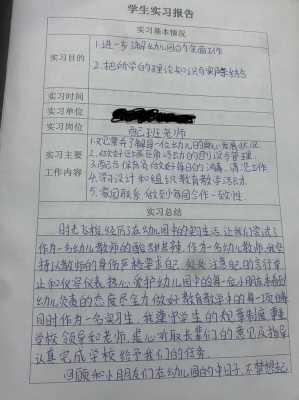 学生实习报告
实习基本情况
实习目的
1.进一步了解幼儿园的全面工作
2.把所学的理论知识与实际结合
实习时间
实习单位
实习岗位
配班老师
实习主要
工作内容
1.观察并了解每一位幼儿的身心发展状况
2.做好
3.配合保育员做好每日的消毒、清洁工作
4.学习设计和组织教育教学活动
5.家园联系,做到家园合作一致性
实习总结
时光飞梭,经历了在幼儿园中的生活,让我们尝试了
作为一名幼儿教师的酸甜苦辣。作为一名幼儿教师,我坚
持以教师的身份严格要求自己,处处注意自己的言行举
止和仪容仪表,热心爱护幼儿园中的每一位小朋友,本着对
幼儿负责的态度尽全力做好教育教学中的每一项
同时作为一名实习生,我遵守学生的规章制度,尊重
学校领导和老师,虚心听取长辈们的意见及指导
认真完成学校给予我们的任务。
回顾和小朋友们在幼儿园的中日子,不禁想起